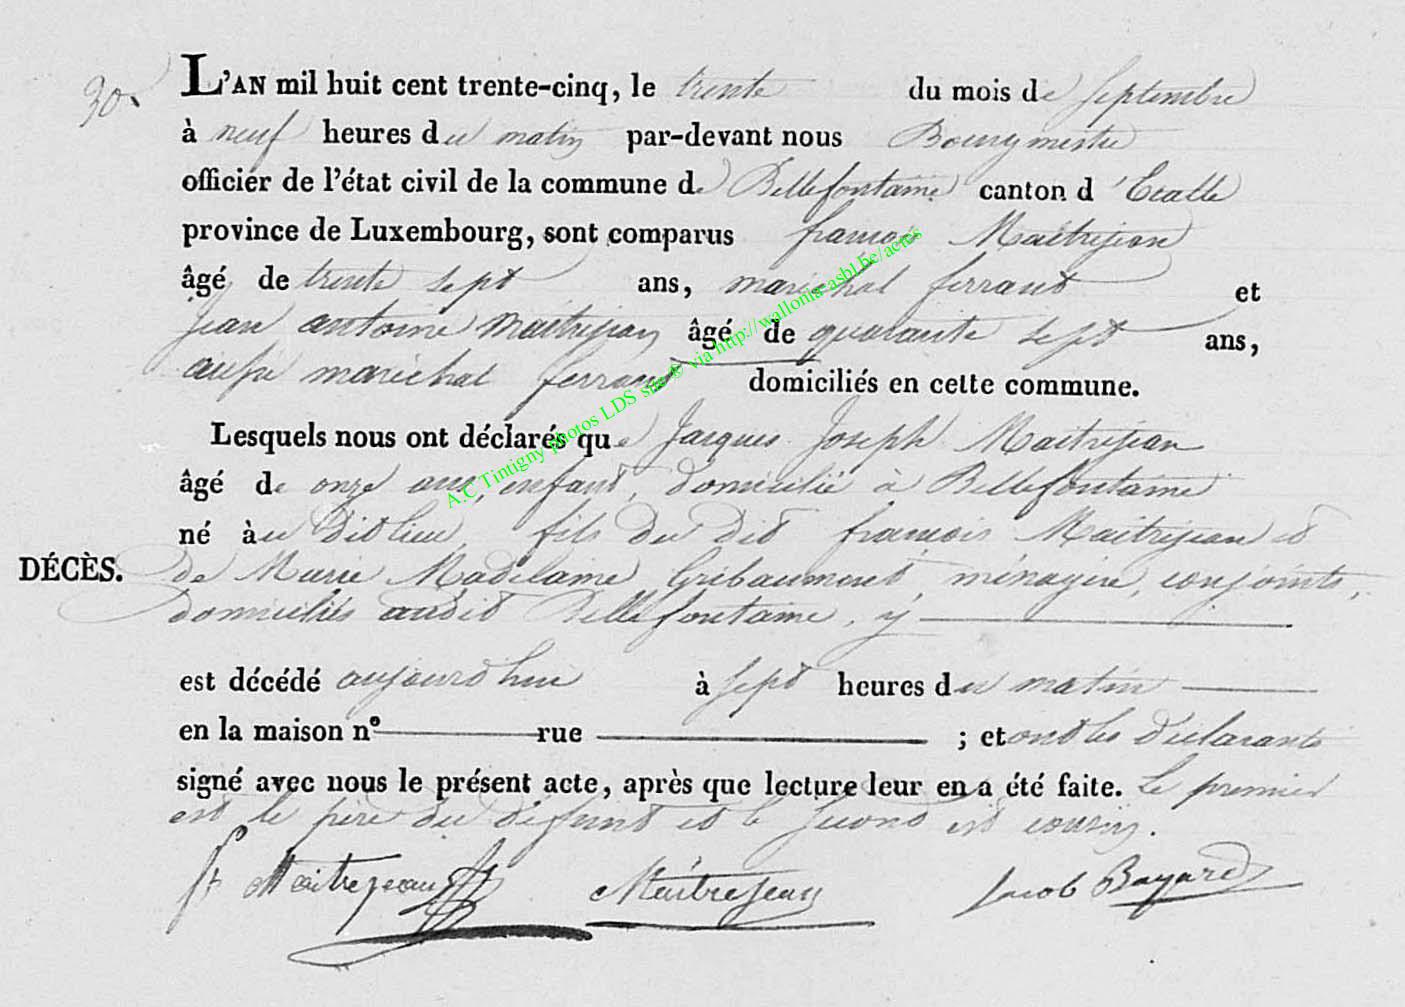 30.
L'AN mil huit cent trente-cinq, le trente du mois de septembre
à neuf heures du matin par-devant nous Bourgmestre
officier de l'état civil de la commune de Bellefontaine canton d'Etalle
province de Luxembourg, sont comparus françois Maitrejean
âgé de trente sept ans, maréchal ferrant et
jean antoine Maitrejean âgé de quarante sept ans,
aussi maréchal ferrant domiciliés en cette commune.
Lesquels nous ont déclarés que Jacques Joseph Maitrejean
âgé de onze ans, enfant, domicilié à Bellefontaine
né au dit lieu, fils du dit françois Maitrejean et
DÉCÈS. de Marie Madelaine Gribaumont, ménagère, conjoints,
domiciliés audit Bellefontaine, y
est décédé aujourd'hui à sept heures du matin
en la maison n° rue ; et ont les déclarants
signé avec nous le présent acte, après que lecture leur en a été faite. Le premier
est le père du défunt et le second est cousin.
fr Maitrejean Maitrejean Jacob Bayard
A.C Tintigny photos LDS site® via http://wallonia-asbl.be/actes